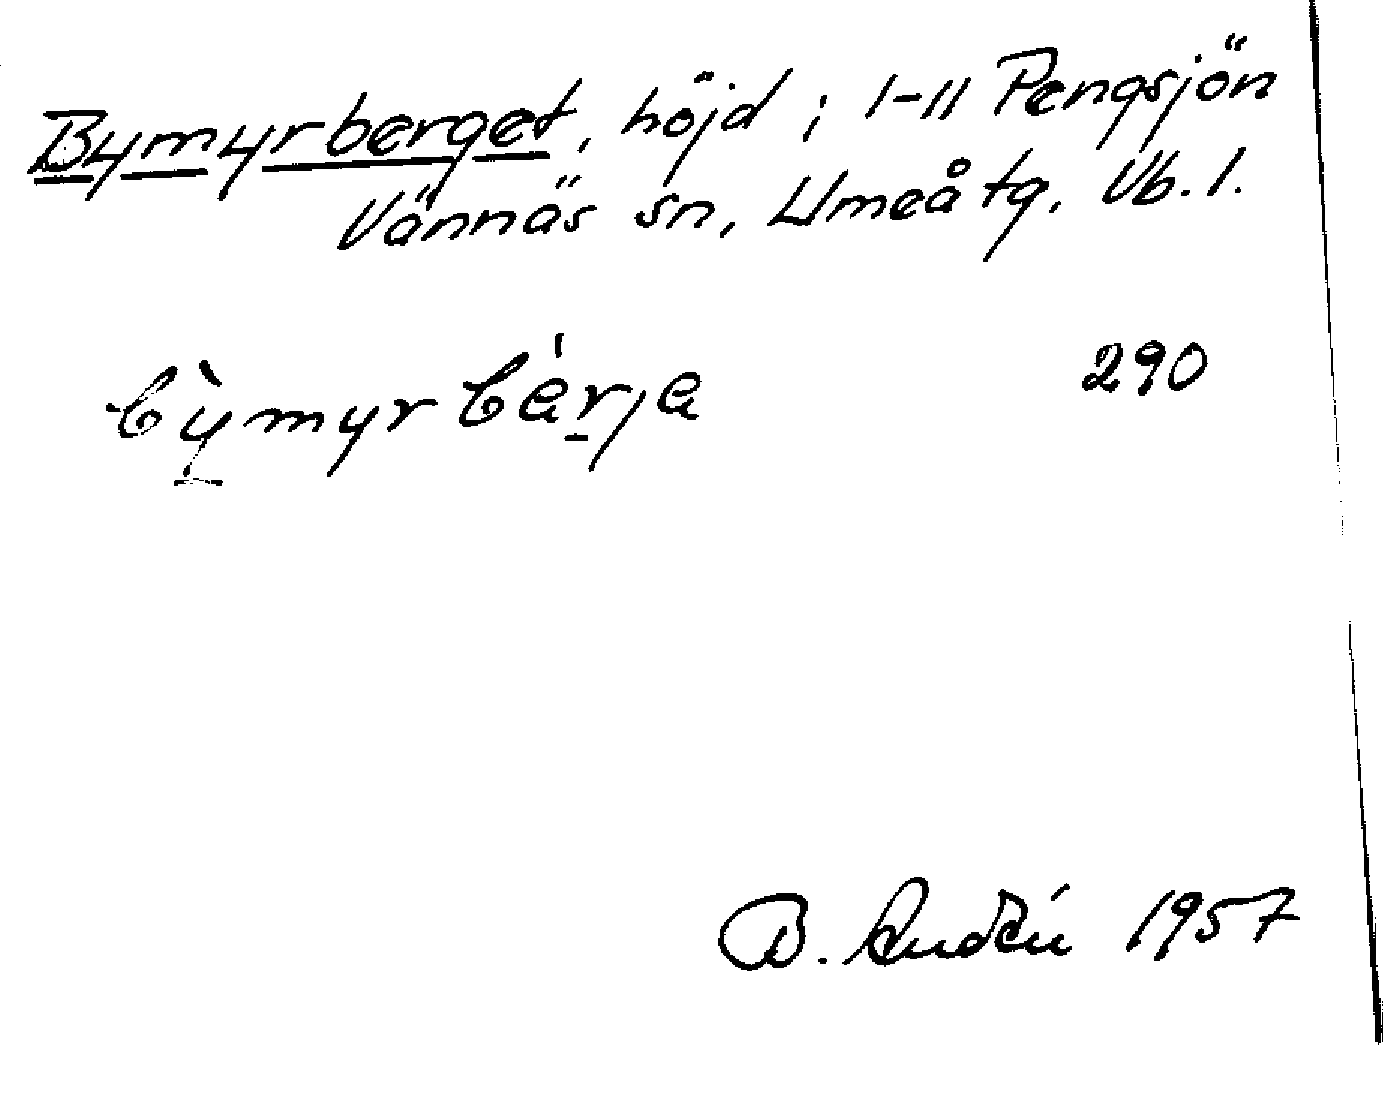 Bymyrberget, höjd; I-II Pengsjön
Vännäs sn, Umeå tg, Vb. l.
bỳmyrbárja 290
B. Audén 1957